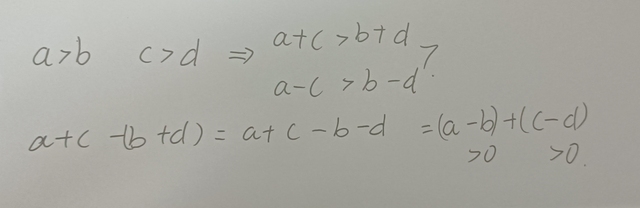 a>b c>d ⇒ a+c>b+d
a-c>b-d ?
a+c-(b+d)=a+c-b-d=(a-b)+(c-d)
>0 >0.